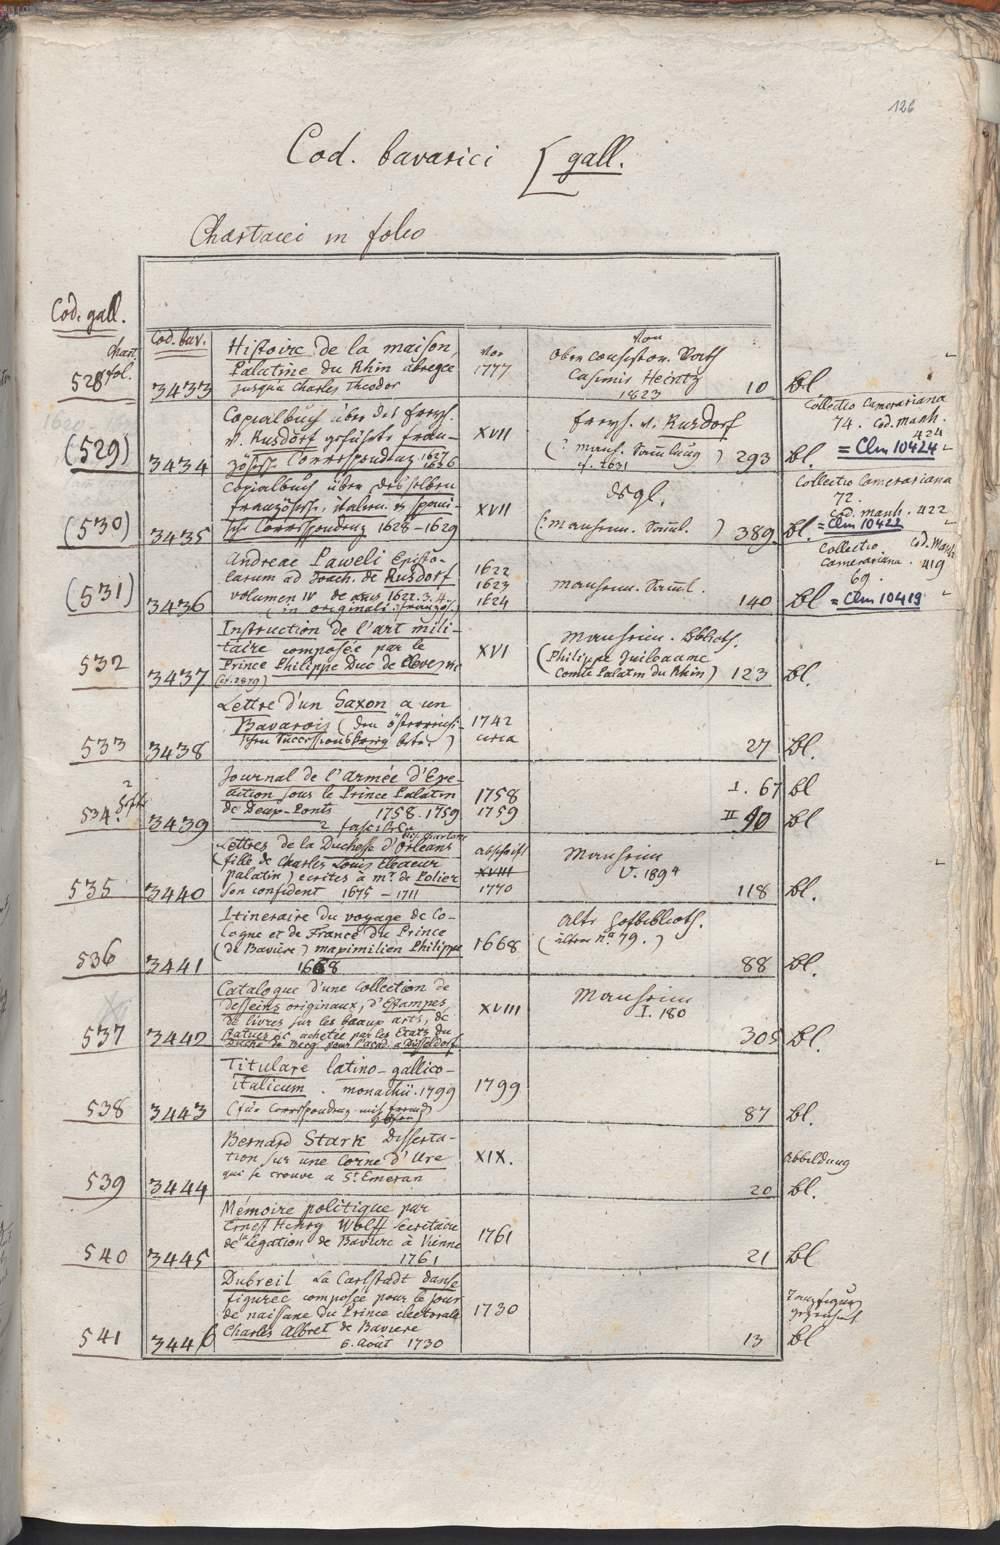 126
Cod. bavarici [gall.
Chartacei in folio
Cod. gall.
Chart.
528 fol.
Cod. bav.
3433
Histoire de la maison
Palatine du Rhin abregée
jusqu'a Charles Theodor
Vor
1777
Von
Ober Consistor. Rath
Casimir Heintz
1823
10 bl
(529)
3434
Copialbuch über des Freyh.
v. Rusdorf geführte fran-
zösisch. Correspondenz 1627
1636
XVII
Freyh. v. Rusdorf
(: manh. Samlung )
293 bl.
Collectio Camerariana
74. Cod. manh.
424
= Clm 10424
(530)
3435
Copialbuch über desselben
französisch. italien. u spani-
sche Correspondenz 1628-1629
XVII
desgl.
(: manheim. Saml. )
389 bl.
Collectio Camerariana
72.
Cod. manh. 422
= Clm 10422
(531)
3436
Andreae Paweli Episto-
larum ad Joach. de Rusdorf
volumen IV de anis 1622.3.4.
(in originali. französ.
1622
1623
1624
manheim. Saml.
140 bl
Collectio Cod. Manh.
Camerariana. 419
69.
= Clm 10419
532
3437
Instruction de l'art mili-
taire composée par le
Prince Philippe Duc de Cleve
XVI
Manheim. Biblioth.
(Philippe Guiloaume
Comte Palatin du Rhin)
123 bl.
533
3438
Lettre d'un Saxon a un
Bavarois (den österreichi-
schen Successionskrieg betr.)
1742
circa
27 bl.
534. 2 Hefte
3439
Journal de l'armée d'Exe-
cution sous le Prince Palatin
de Deux-Ponts 1758. 1759
2 fascikel
1758
1759
I. 67 bl
II 90 bl
535
3440
Lettres de la Duchesse d'Orleans
(fille de Charles Louis Electeur
palatin) ecrites à mr. de Polier
son confident 1675 - 1711
abschrift
XVIII
1770
Manheim
V. 189 4
118 bl.
536
3441
Itineraire du voyage de Co-
logne et de France du Prince
(de Baviere) maximilien Philippe
1668
1668
Alte Hofbiblioth.
(ältere No. 79.)
88 bl.
537
3442
Catalogue d'une Collection de
desseins originaux, d'Estampes,
de livres sur les beaux arts, de
statues &c achetée par les Etats du
Duché de Berg pour l'acad. a Düsseldorf
XVIII
Manheim
I. 180
305 bl.
538
3443
Titulare latino-gallico-
italicum. monachii. 1799
(für Correspondenz mit fremden
Höfen)
1799
87 bl.
539
3444
Bernard Stark Disserta-
tion sur une Corne d'Ure
qui se trouve a St. Emeran
XIX.
20 bl.
Abbildung
540
3445
Mémoire politique par
Ernest Henry Wolff Secrétaire
de la Legation de Baviere à Vienne
1761
1761
21 bl
541
3446
Dubreil La Carlstadt danse
figurée composée pour le jour
de naissane du Prince electorale
Charles Albret de Baviere
6. aout 1730
1730
13 bl
Tanzfiguren
gezeichnet